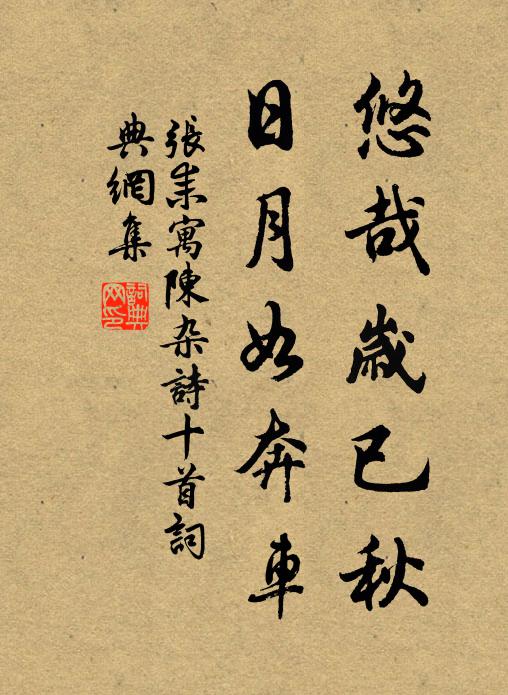 悠哉歲已秋
日月如奔車
張耒寓陳杂詩十首詞
典網集
詞典
网印